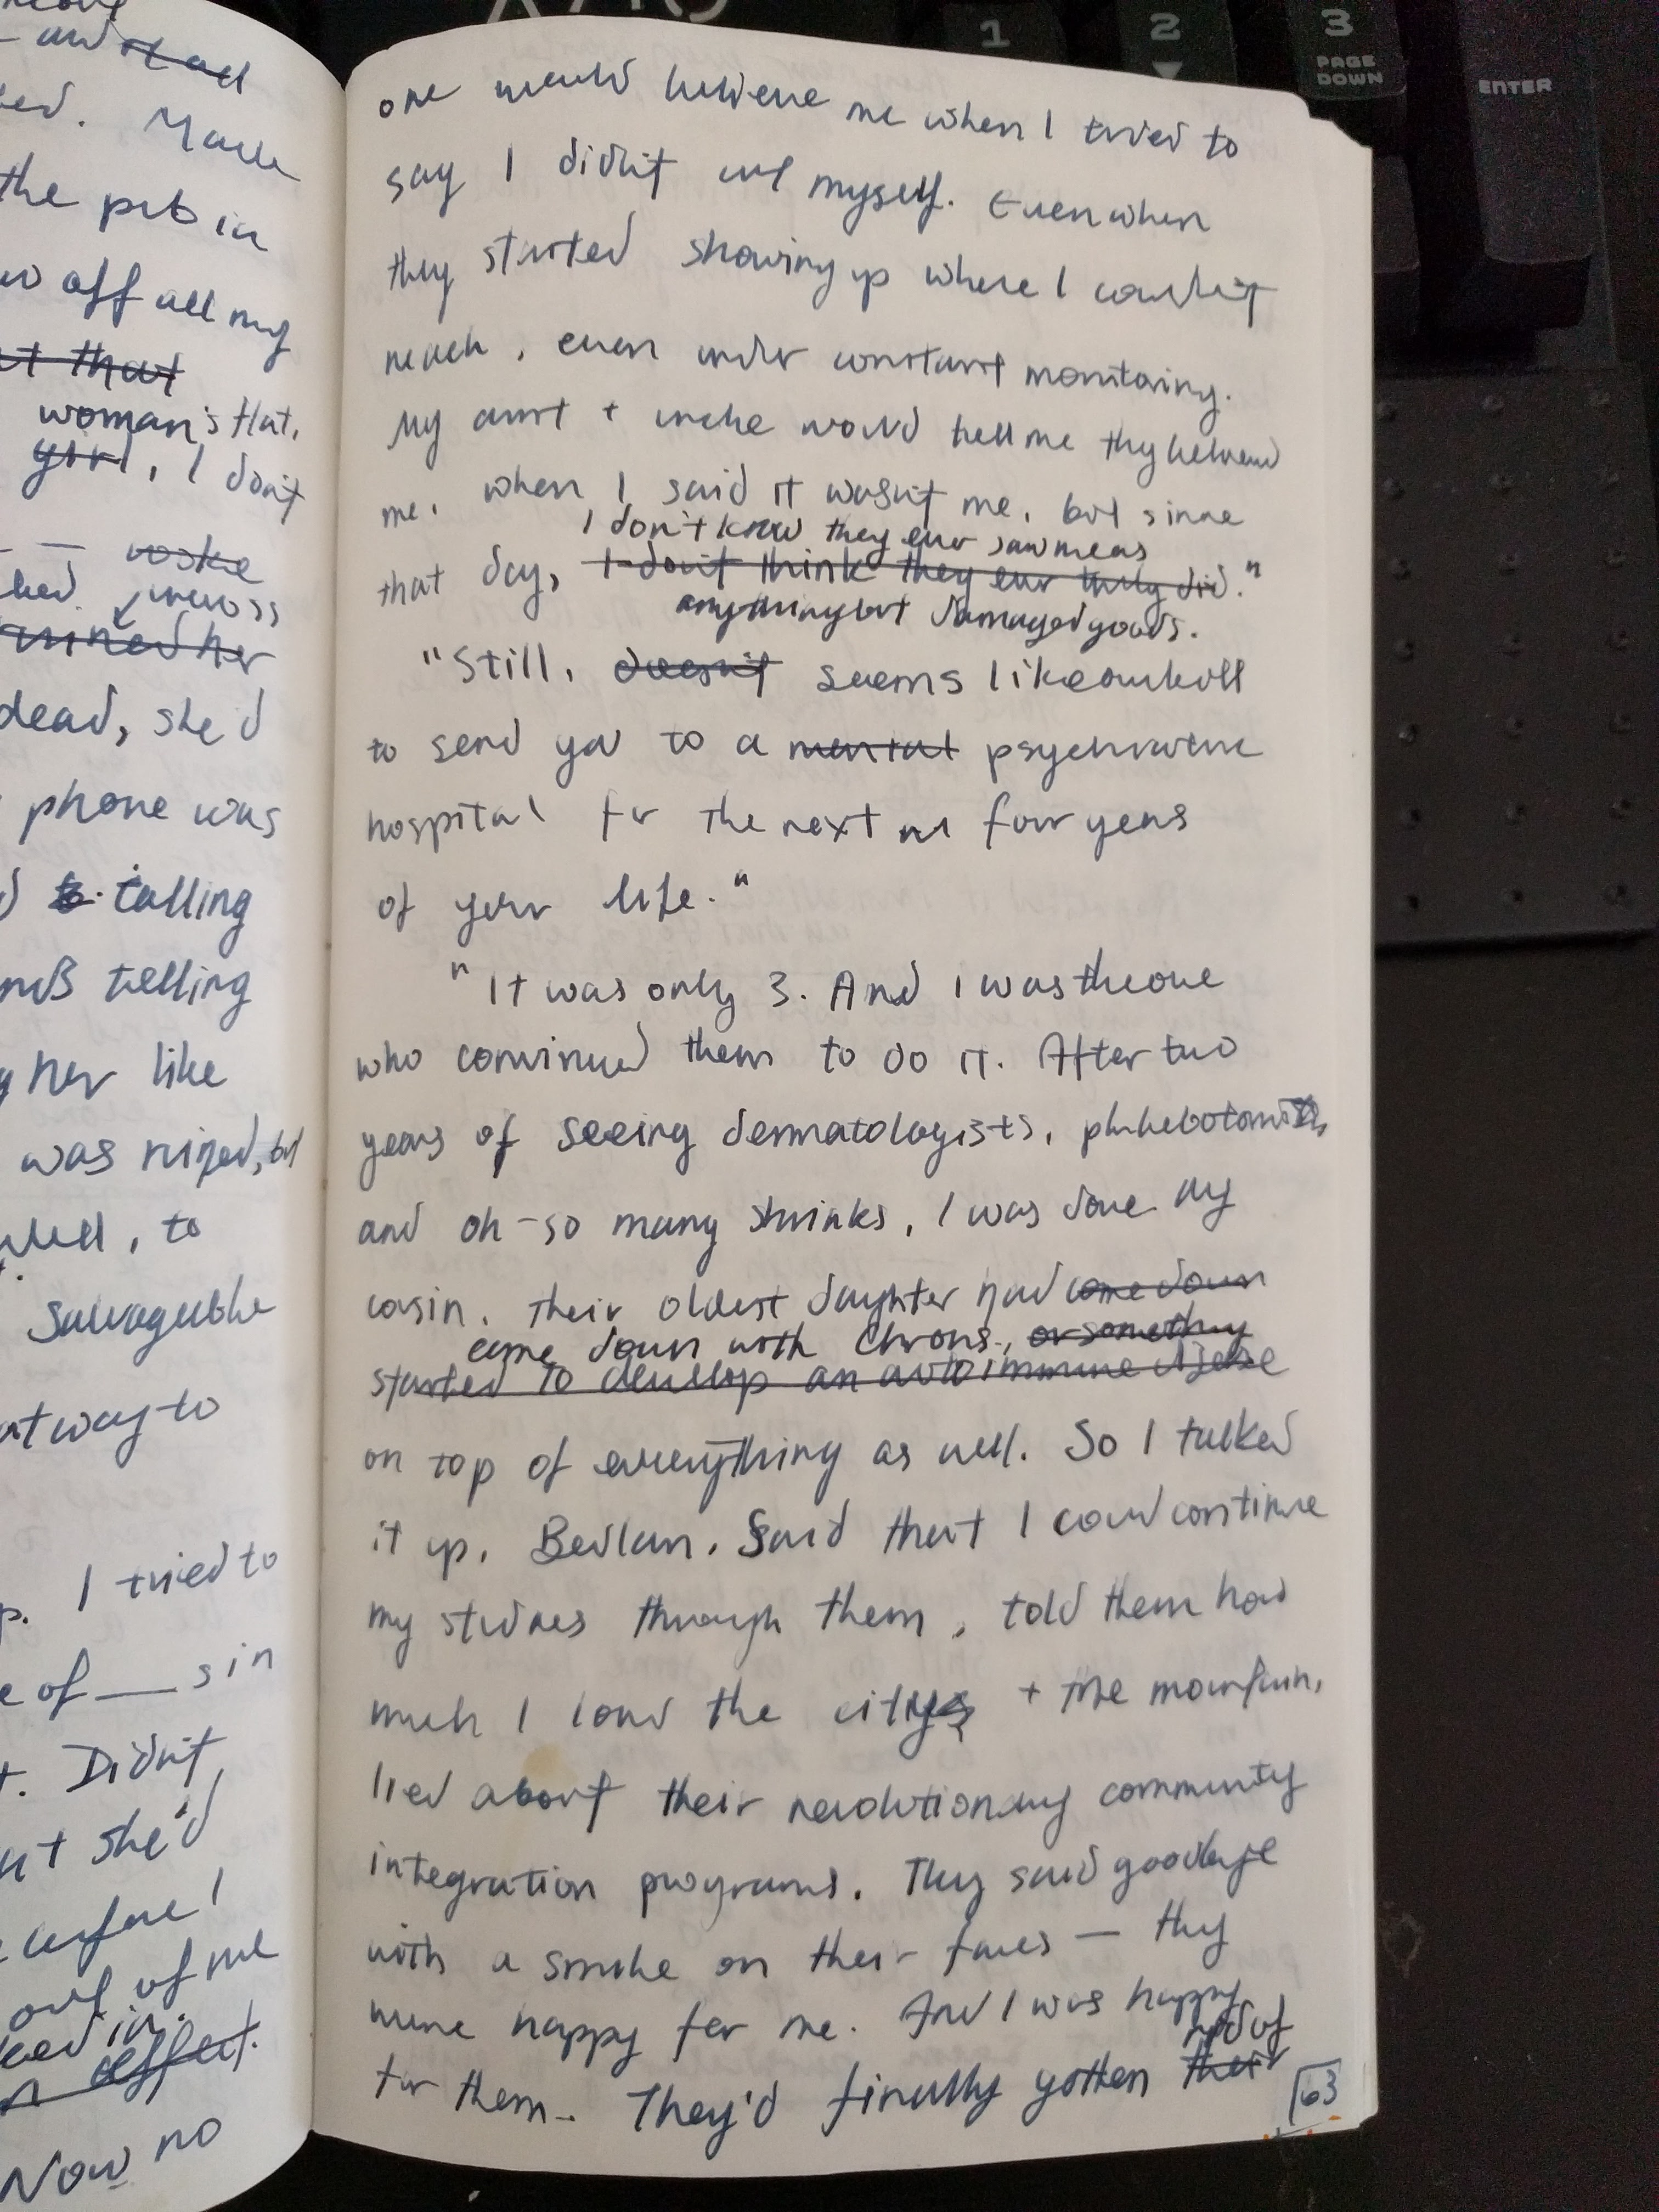 and
ted. Made
the pub in
off all my
that
woman's flat,
girl, I don't
woke
across
her
dead, she'd
phone was
talling
telling
her like
was nized, but
well, to
Salvageable
at way to
I tried to
of ___s in
Didn't
she'd
out of me
in.
effect.
Now no
1
2
3
PAGE
DOWN
ENTER
one would believe me when I tried to
say I didn't cut myself. Even when
they started showing up where I couldn't
reach, even under constant monitoring.
My aunt + uncle would tell me they believed
me, when I said it wasn't me, but since
I don't know they ever saw me as
that day, I don't think they ever truly did."
anything but damaged goods.
"Still, doesn't seems like overkill
to send you to a mental psychiatric
hospital for the next four years
of your life."
"It was only 3. And I was the one
who convinced them to do it. After two
years of seeing dermatologists, phlebotomists,
and oh-so many shrinks, I was done My
cousin, their oldest daughter had come down
come down with Chrons, or something
started to develop an autoimmune disease
on top of everything as well. So I talked
it up, Bedlam. Said that I could continue
my studies through them, told them how
much I loved the city + the mountain,
lied about their revolutionary community
integration programs. They said goodbye
with a smile on their faces — they
were happy for me. And I was happy
rid of
for them. They'd finally gotten their
63